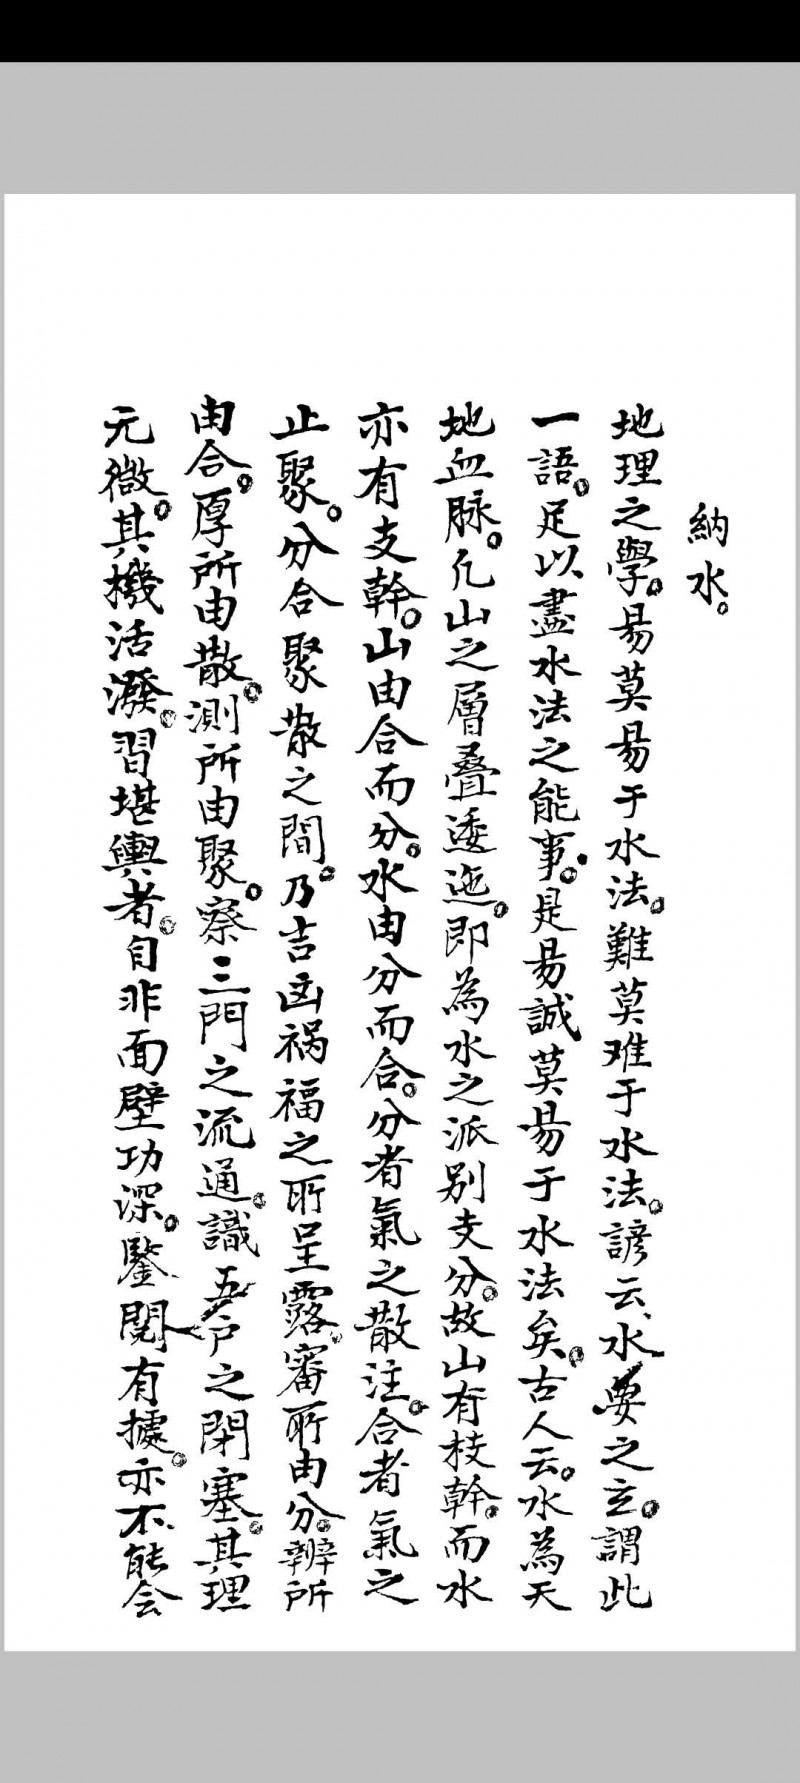 納水。
地理之學。易莫易于水法。難莫难于水法。諺云、水要之玄。謂此
一語。足以盡水法之能事。是易誠莫易于水法矣。古人云。水為天
地血脉。凡山之層叠逶迤。即為水之派别支分。故山有枝幹。而水
亦有支幹。山由合而分。水由分而合。分者氣之散注。合者氣之
止聚。分合聚散之間。乃吉凶祸福之所呈露。審所由分。辨所
由合。厚所由散。測所由聚。察三門之流通。識五户之閉塞。其理
元微。其機活潑。習堪輿者。自非面壁功深。鑒閱有據。亦不能会